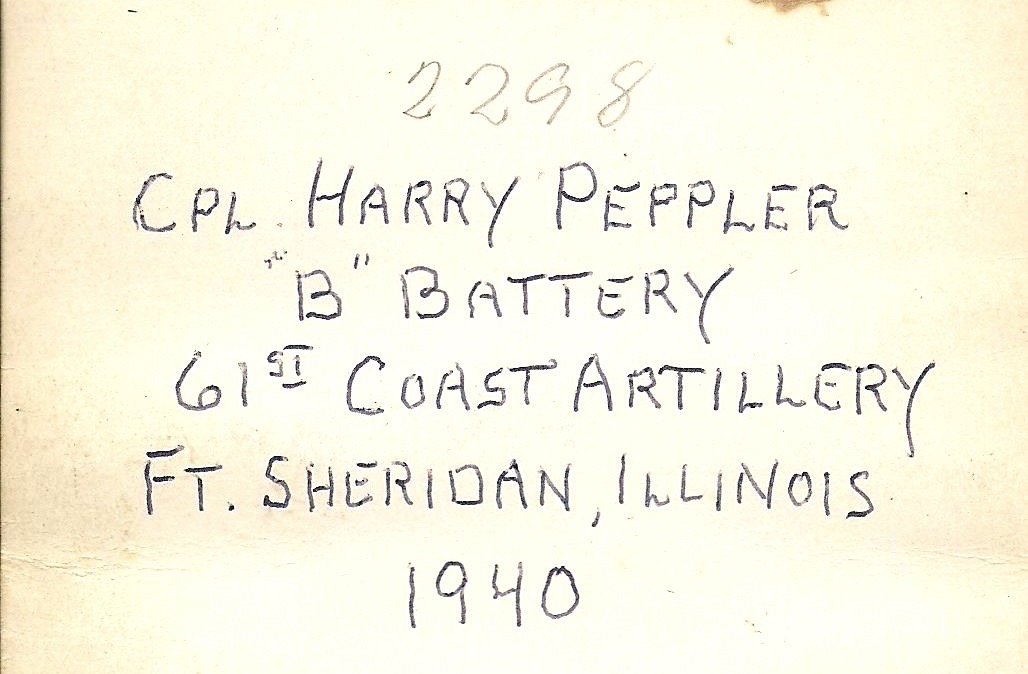 2298
CPL. HARRY PEPPLER
"B" BATTERY
61ST COAST ARTILLERY
FT. SHERIDAN, ILLINOIS
1940